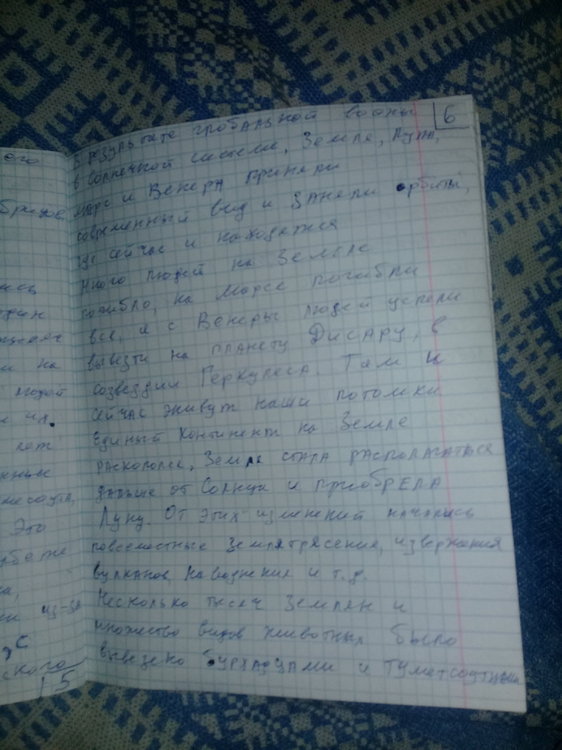 его
брихов
на
людей
их.
лет
Это
из-за
ского
5
6
Результате глобальной войны
в солнечной системе, Земля, Луна,
Марс и Венера приняли
современный вид и заняли орбиты,
где сейчас и находятся
Много людей на Земле
погибло, на Марсе погибли
все, а с Венеры людей успели
вывезти на планету Дисару, в
созвездии Геркулеса. Там и
сейчас живут наши потомки
Единый континент на Земле
раскололся, Земля стала располагаться
дальше от Солнца и приобрела
Луну. От этих изменений начались
повсеместные землятрясения, извержения
вулканов, наводнения и т.д.
Несколько тысяч землян и
множество видов животных было
вывезено Бурхадцами и